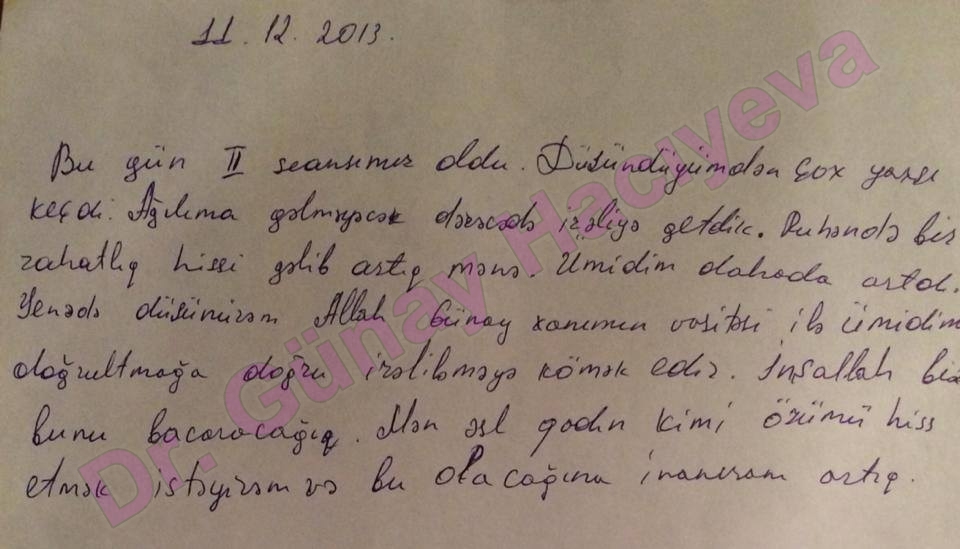 11. 12. 2013.
Bu gün II seansımız oldu. Düşündüyümdən çox yaxşı
keçdi. Ağılıma gəlməyəcək dərəcədə irəliyə getdik. Ruhəndə bir
rahatlıq hissi gəlib artıq mənə. Ümidim dahada artdı.
Yenədə düşünürəm Allah Günay xanımın vasitəsi ilə ümidim
doğrultmağa doğru irəliləməyə kömək edir. İnşallah biz
bunu bacaracağıq. Mən əsl qadın kimi özümü hiss
etmək istəyirəm və bu olacağına inanıram artıq.
Dr. Günay Hacıyeva